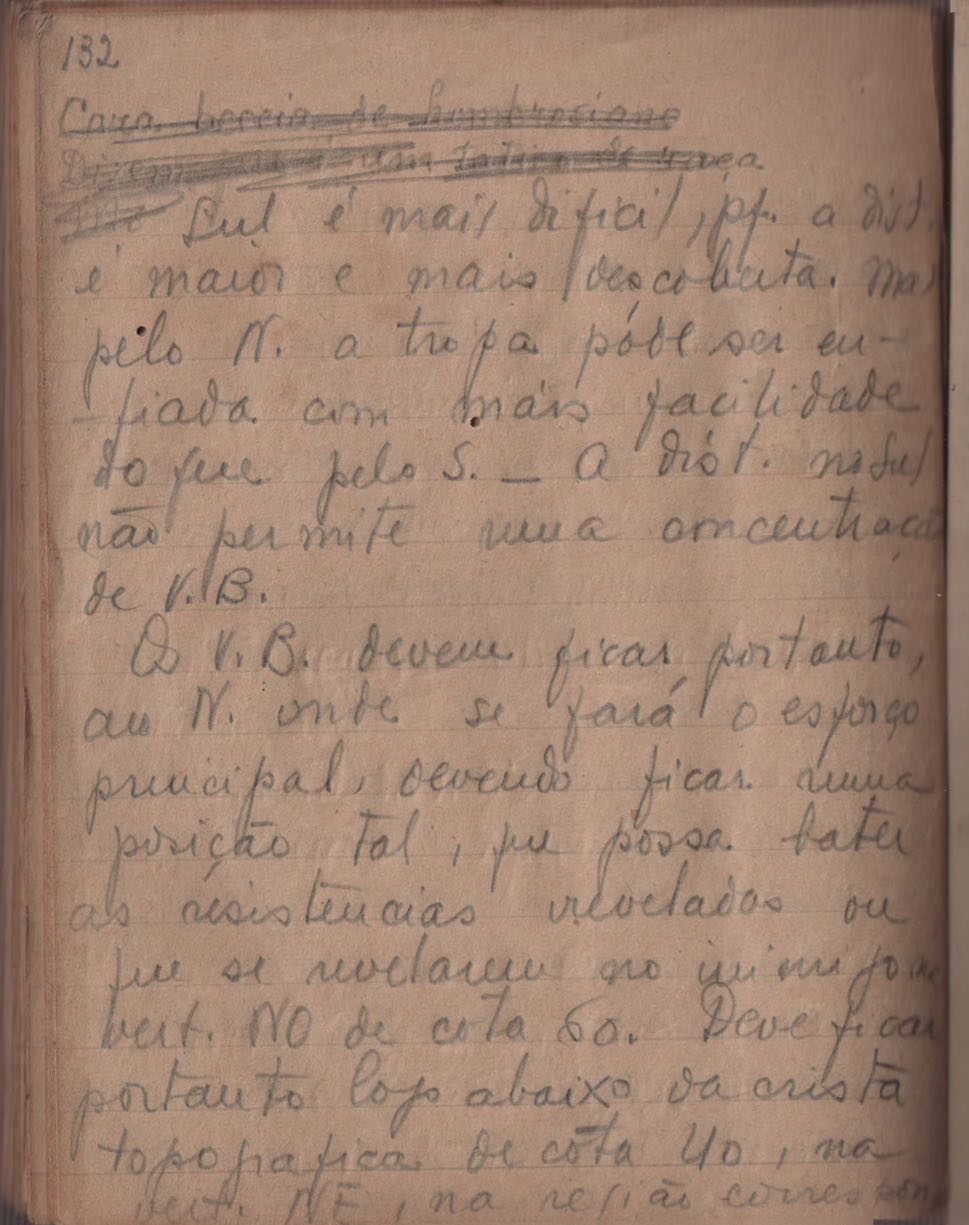 132
de
um de
Sul é mais dificil, pq. a dist.
é maior e mais descoberta. Mas
pelo N. a tropa póde ser en-
-fiada com mais facilidade
do que pelo S. _ A dist. no Sul
não permite uma concentração
de V.B.
Os V.B. devem ficar, portanto,
ao N. onde se fará o esforço
principal, devendo ficar numa
posição tal, que possa bater
as resistências reveladas ou
que se revelarem no inimigo na
vert. NO de cota 60. Deve ficar
portanto logo abaixo da crista
topografica de cóta 40, na
vert. NE, na região correspon-